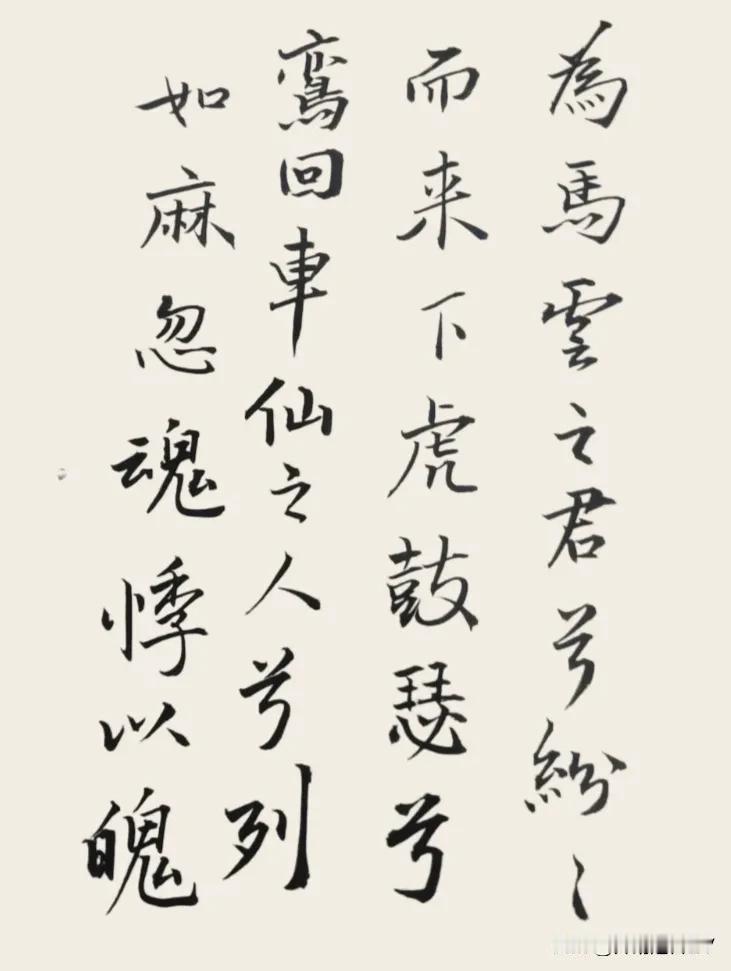 為馬雲之君兮紛〻
而来下虎鼓瑟兮
鸞回車仙之人兮列
如麻忽魂悸以魄